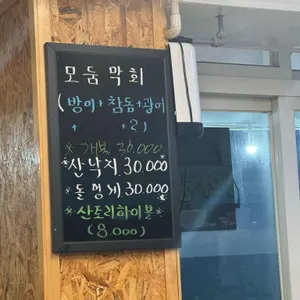 모둠막회
(방어+참돔+광어
+ +2)
※개불 30.000
※산낙지 30.000
※돌멍게 30.000
※산토리하이볼
(8.000)